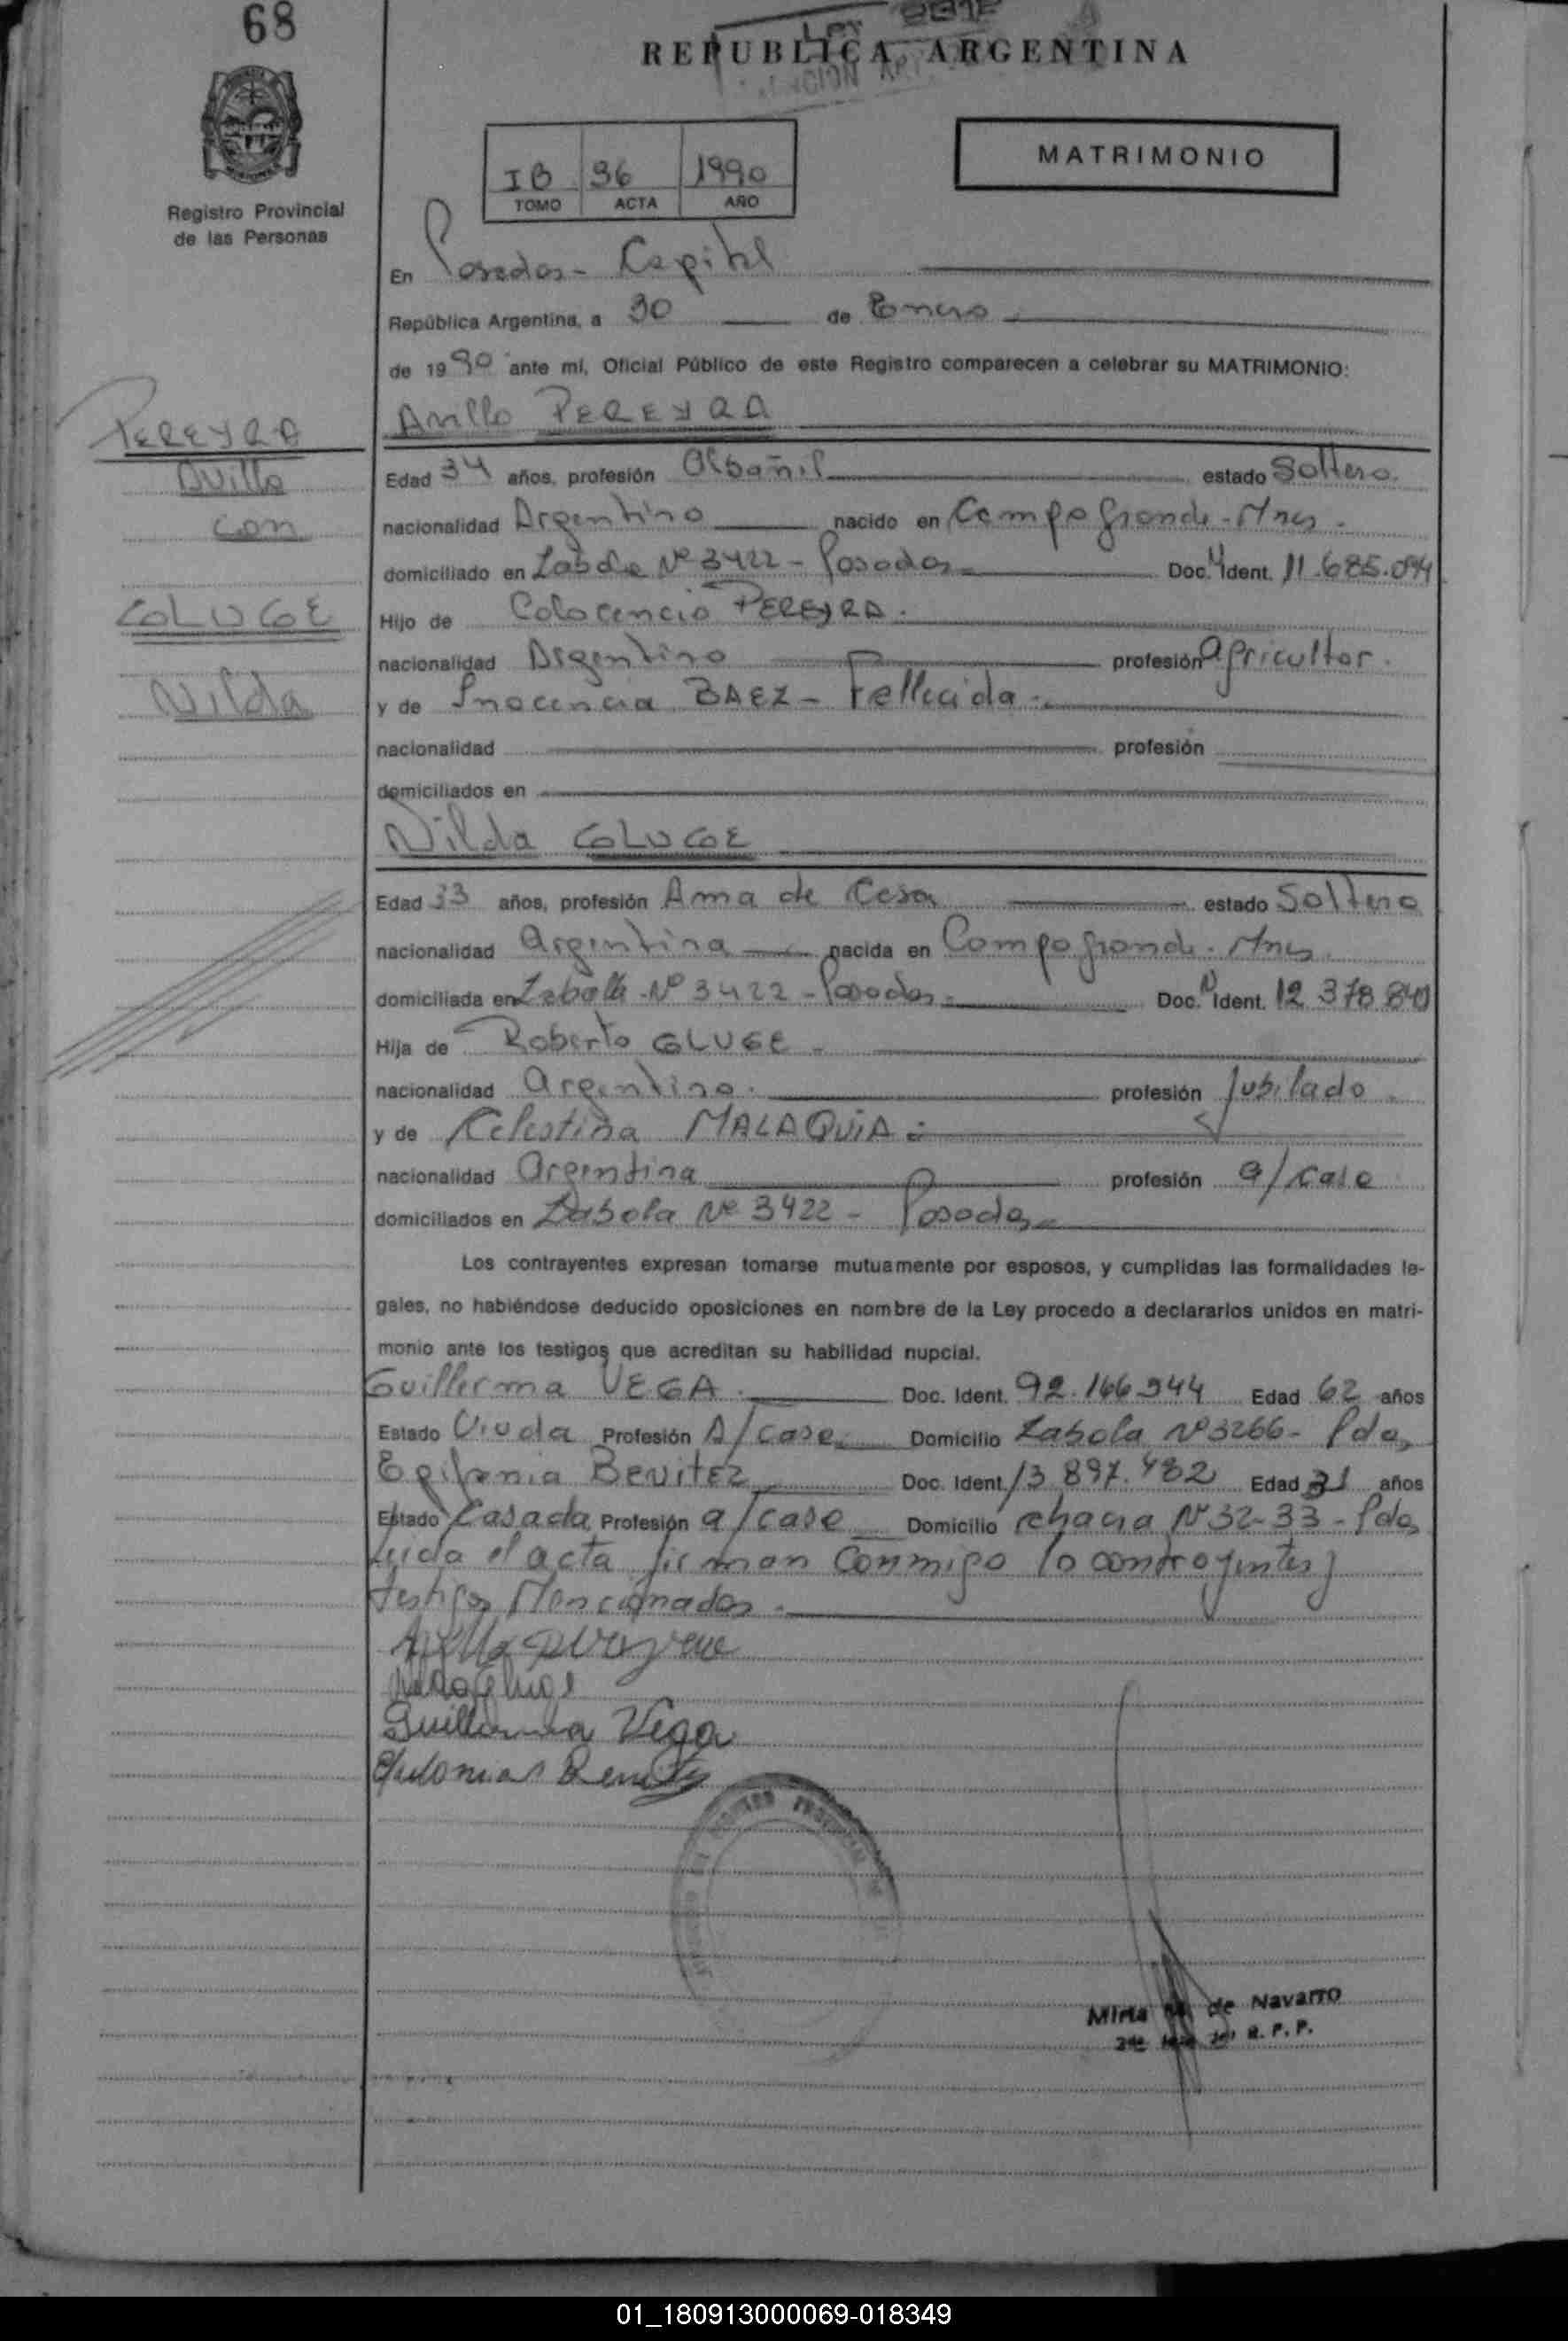 68
REPUBLICA ARGENTINA
MATRIMONIO
IB 96 1990
TOMO ACTA AÑO
Registro Provincial
de las Personas
En Posadas - Capital
República Argentina, a 30 de Enero
de 1990 ante mi, Oficial Público de este Registro comparecen a celebrar su MATRIMONIO:
PEREYRA
con
Nilda
PEREYRA
Edad 34 años, profesión Albañil estado Soltero.
nacionalidad Argentino nacido en Campo Grande - Mnes.
domiciliado en Zabala Nº 3422 - Posadas Doc. Ident. 11.685.094
Hijo de PEREYRA.
nacionalidad Argentino profesión Agricultor.
y de Inocencia BAEZ - Fallecida.
nacionalidad profesión
domiciliados en
Nilda
Edad 33 años, profesión Ama de Casa estado Soltera
nacionalidad Argentina nacida en Campo Grande - Mnes
domiciliada en Zabala Nº 3422 - Posadas Doc. Ident. 12.378.840
Hija de Roberto GLUGE -
nacionalidad Argentino. profesión Jubilado.
y de Celestina MALAQUIA
nacionalidad Argentina profesión a/casa
domiciliados en Zabala Nº 3422 - Posadas
Los contrayentes expresan tomarse mutuamente por esposos, y cumplidas las formalidades le-
gales, no habiéndose deducido oposiciones en nombre de la Ley procedo a declararlos unidos en matri-
monio ante los testigos que acreditan su habilidad nupcial.
Guillerma VEGA. Doc. Ident. 92.166.944 Edad 62 años
Estado Viuda Profesión A/casa Domicilio Zabala Nº 3266 - Pdas
Epifania BENITEZ Doc. Ident. 13.897.482 Edad 31 años
Estado Casada Profesión a/casa Domicilio chacra Nº 32-33 - Pdas
Leida el acta firman conmigo lo contrayentes y
testigos Mencionados.
Guillerma Vega
Benitez
Mirta de Navarro
R. P. P.
01_180913000069-018349